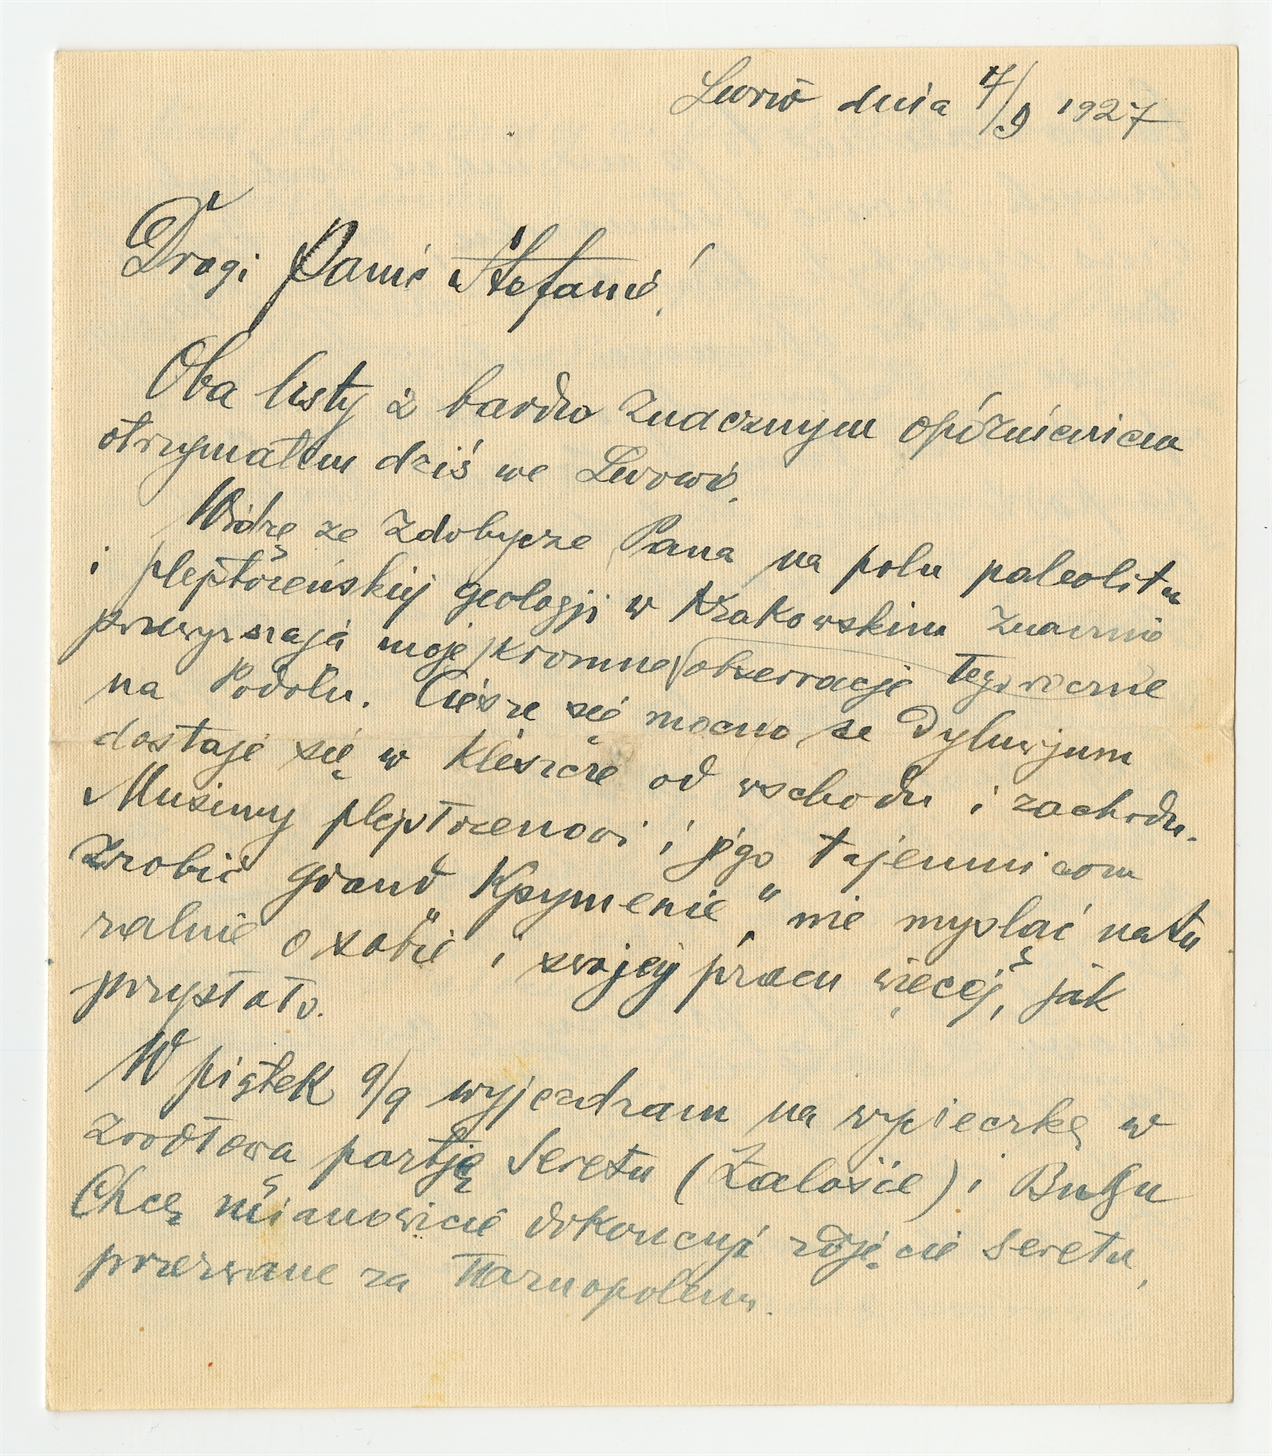 Lwów dnia 7/9 1927
Drogi Panie Stefanie!
Oba listy z bardzo znacznym opóźnieniem
otrzymałem dziś we Lwowie.
Widzę ze zdobycze Pana na polu paleolitu
i plejstoceńskiej geologji w Krakowskim znacznie
przewyższają moje skromne obserwacje tegoroczne
na Podolu. Cieszę się mocno ze dyluwjum
dostaje się w kleszcze od wschodu i zachodu.
Musimy plejstocenowi i jego tajemnicom
zrobić "grand" nie mysląć natu
ralnie o sobie i swojej pracy więcej, jak
przystało.
W piątek 9/9 wyjezdzam na wycieczkę w
zrodłową partję Seretu (Załośce) i Bugu
Chcę mianowicie dokończyć zdjęcie Seretu,
przerwane za Tarnopolem.